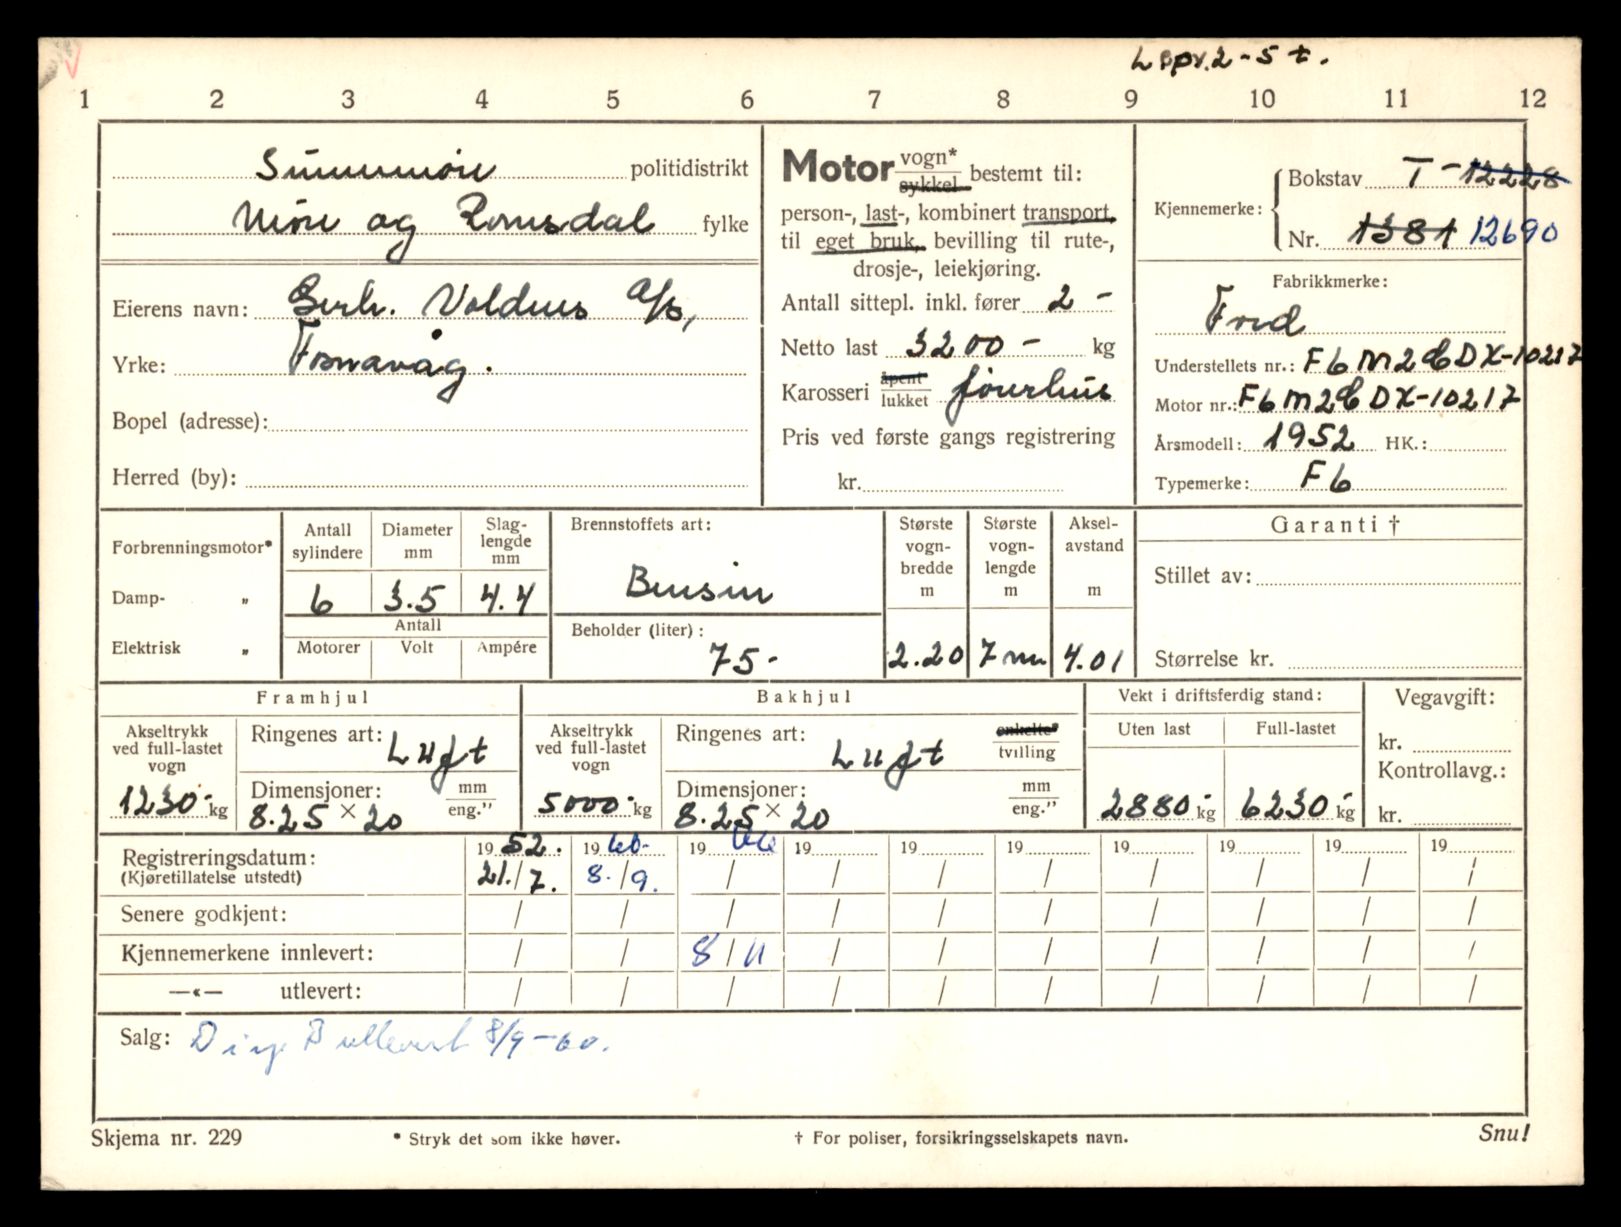 L spr. 2-5 t.
1 2 3 4 5 6 7 8 9 10 11 12
Sunnmøre politidistrikt
Møre og Romsdal fylke
Eierens navn: Gerh. Voldnes A/s,
Yrke: Fosnavåg.
Bopel (adresse):
Herred (by):
Motor vogn* sykkel bestemt til:
person-, last-, kombinert transport,
til eget bruk, bevilling til rute-,
drosje-, leiekjøring.
Antall sittepl. inkl. fører 2 -
Netto last 3200 - kg
Karosseri åpent lukket førerhus
Pris ved første gangs registrering
kr.
Kjennemerke: Bokstav T - 12228
Nr. 1381 12690
Fabrikkmerke:
Ford
Understellets nr.: F6M2 DX-10217
Motor nr.: F6M2 DX-10217
Årsmodell: 1952 HK.:
Typemerke: F6
Forbrenningsmotor*
Damp- „
Elektrisk „
Antall sylindere Diameter mm Slag- lengde mm
6 3.5 4.4
Antall
Motorer Volt Ampére
Brennstoffets art:
Bensin
Beholder (liter):
75-
Største vogn- bredde m Største vogn- lengde m Aksel- avstand m
2.20 7 m 4.01
Garanti †
Stillet av:
Størrelse kr.
Framhjul
Akseltrykk ved full-lastet vogn
1230- kg
Ringenes art: Luft
Dimensjoner: mm eng.”
8.25 × 20
Bakhjul
Akseltrykk ved full-lastet vogn
5000- kg
Ringenes art: Luft enkelte* tvilling
Dimensjoner: mm eng.”
8.25 × 20
Vekt i driftsferdig stand:
Uten last Full-lastet
2880- kg 6230- kg
Vegavgift:
kr.
Kontrollavg.:
kr.
Registreringsdatum: 19 52. 19 60- 19 66 19 19 19 19 19 19 19
(Kjøretillatelse utstedt) 21./7. 8./9. / / / / / / / /
Senere godkjent: / / / / / / / / / /
Kjennemerkene innlevert: / / 8/11 / / / / / / /
—«— utlevert: / / / / / / / / / /
Salg: 8/9-60.
Skjema nr. 229 * Stryk det som ikke høver. † For poliser, forsikringsselskapets navn. Snu!